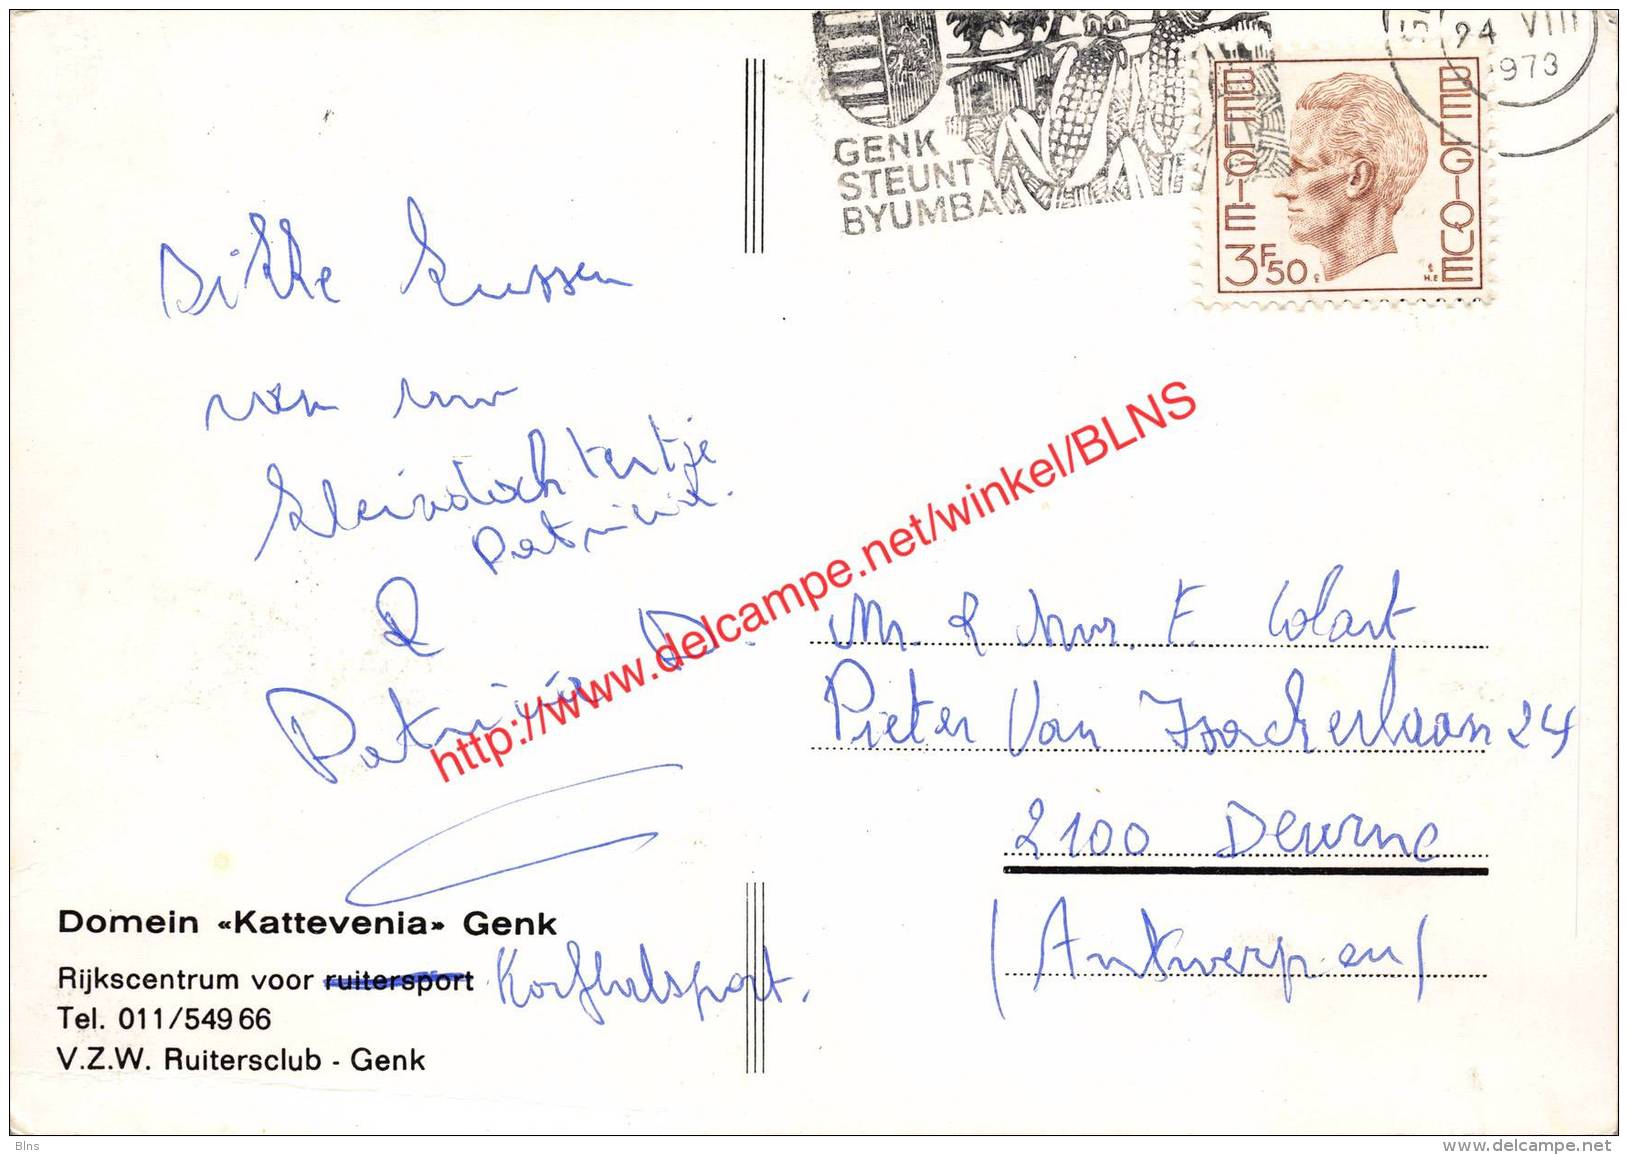 24 VIII
1973
GENK
STEUNT
BYUMBA
BELGIE
BELGIQUE
3F50
H.E
Dikke kussen
van uw
kleindochtertje
Patricia.
&
Patricia D.
http://www.delcampe.net/winkel/BLNS
Mr. & Mvr. F. Colart
Pieter Van Isackerlaan 24
2100 Deurne
(Antwerpen)
Domein «Kattevenia» Genk
Rijkscentrum voor ruitersport Korfbalsport.
Tel. 011/549 66
V.Z.W. Ruitersclub - Genk
Blns
www.delcampe.net